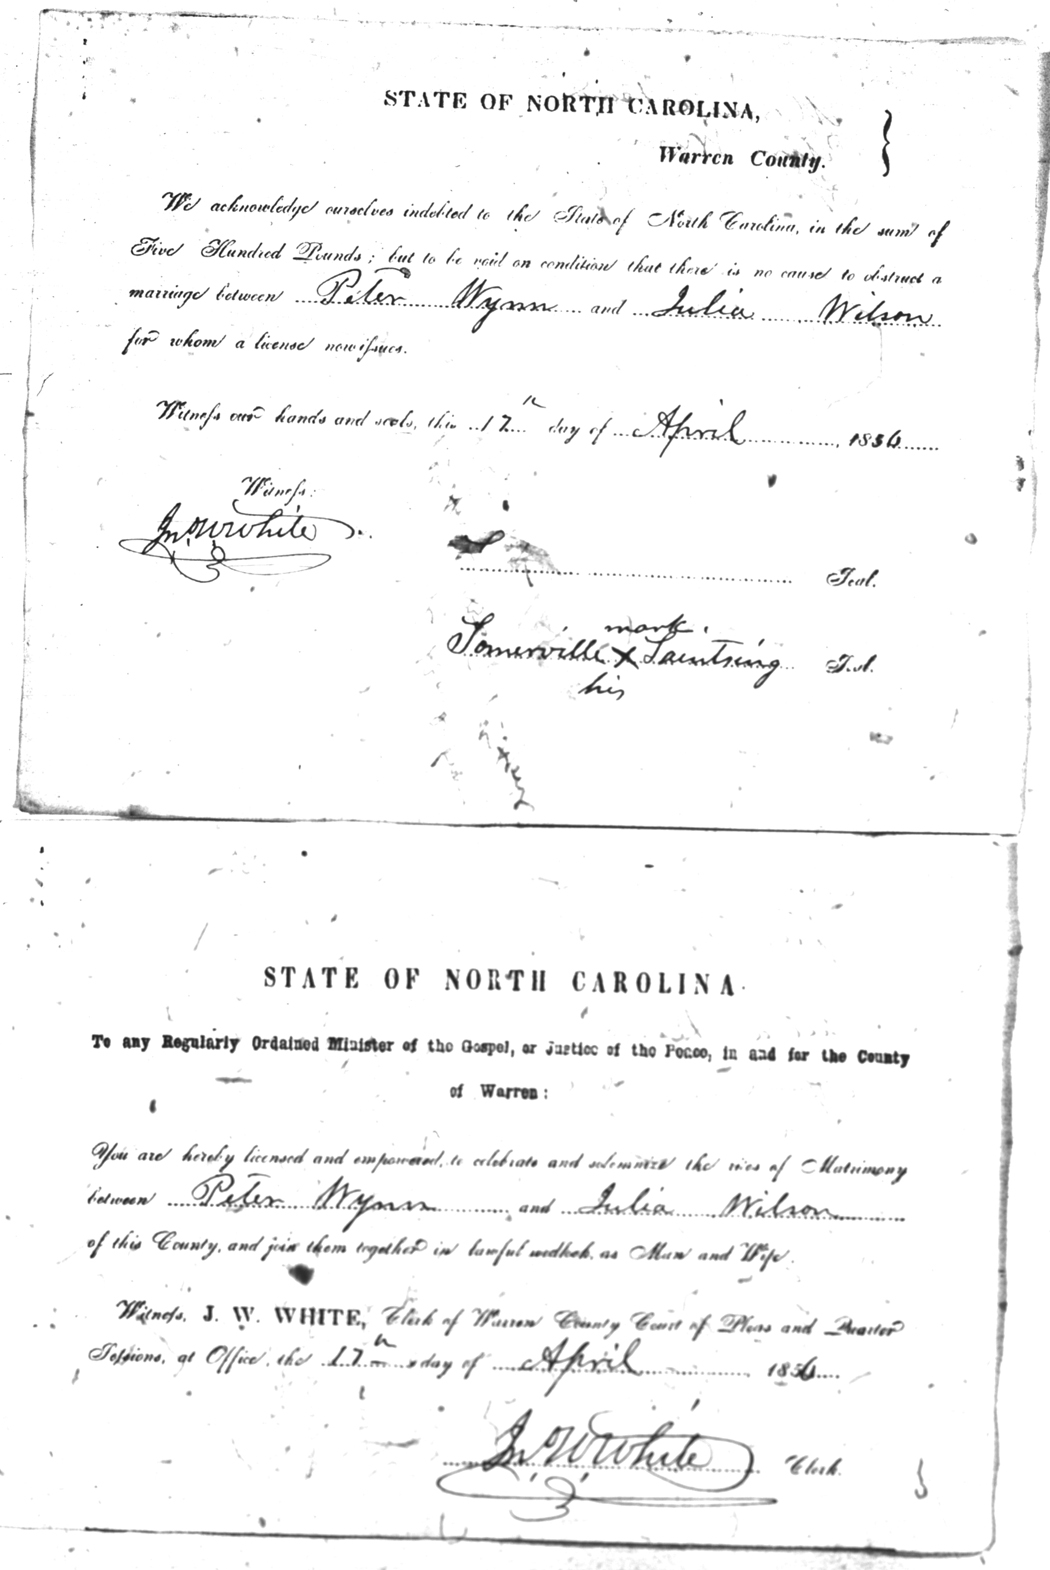 STATE OF NORTH CAROLINA,
Warren County.
We acknowledge ourselves indebted to the State of North Carolina, in the sum of
Five Hundred Pounds; but to be void on condition that there is no cause to obstruct a
marriage between Peter Wynn and Julia Wilson
for whom a license now issues.
Witness our hands and seals, this 17th day of April, 1856
Witness:
Jno W White
Seal.
mark.
Somerville X Seal.
his
STATE OF NORTH CAROLINA.
To any Regularly Ordained Minister of the Gospel, or Justice of the Peace, in and for the County
of Warren:
You are hereby licensed and empowered, to celebrate and solemnize the rites of Matrimony
between Peter Wynn and Julia Wilson
of this County, and join them together in lawful wedlock, as Man and Wife.
Witness, J. W. WHITE, Clerk of Warren County Court of Pleas and Quarter
Sessions, at Office, the 17th day of April 1856
Jno W White Clerk.